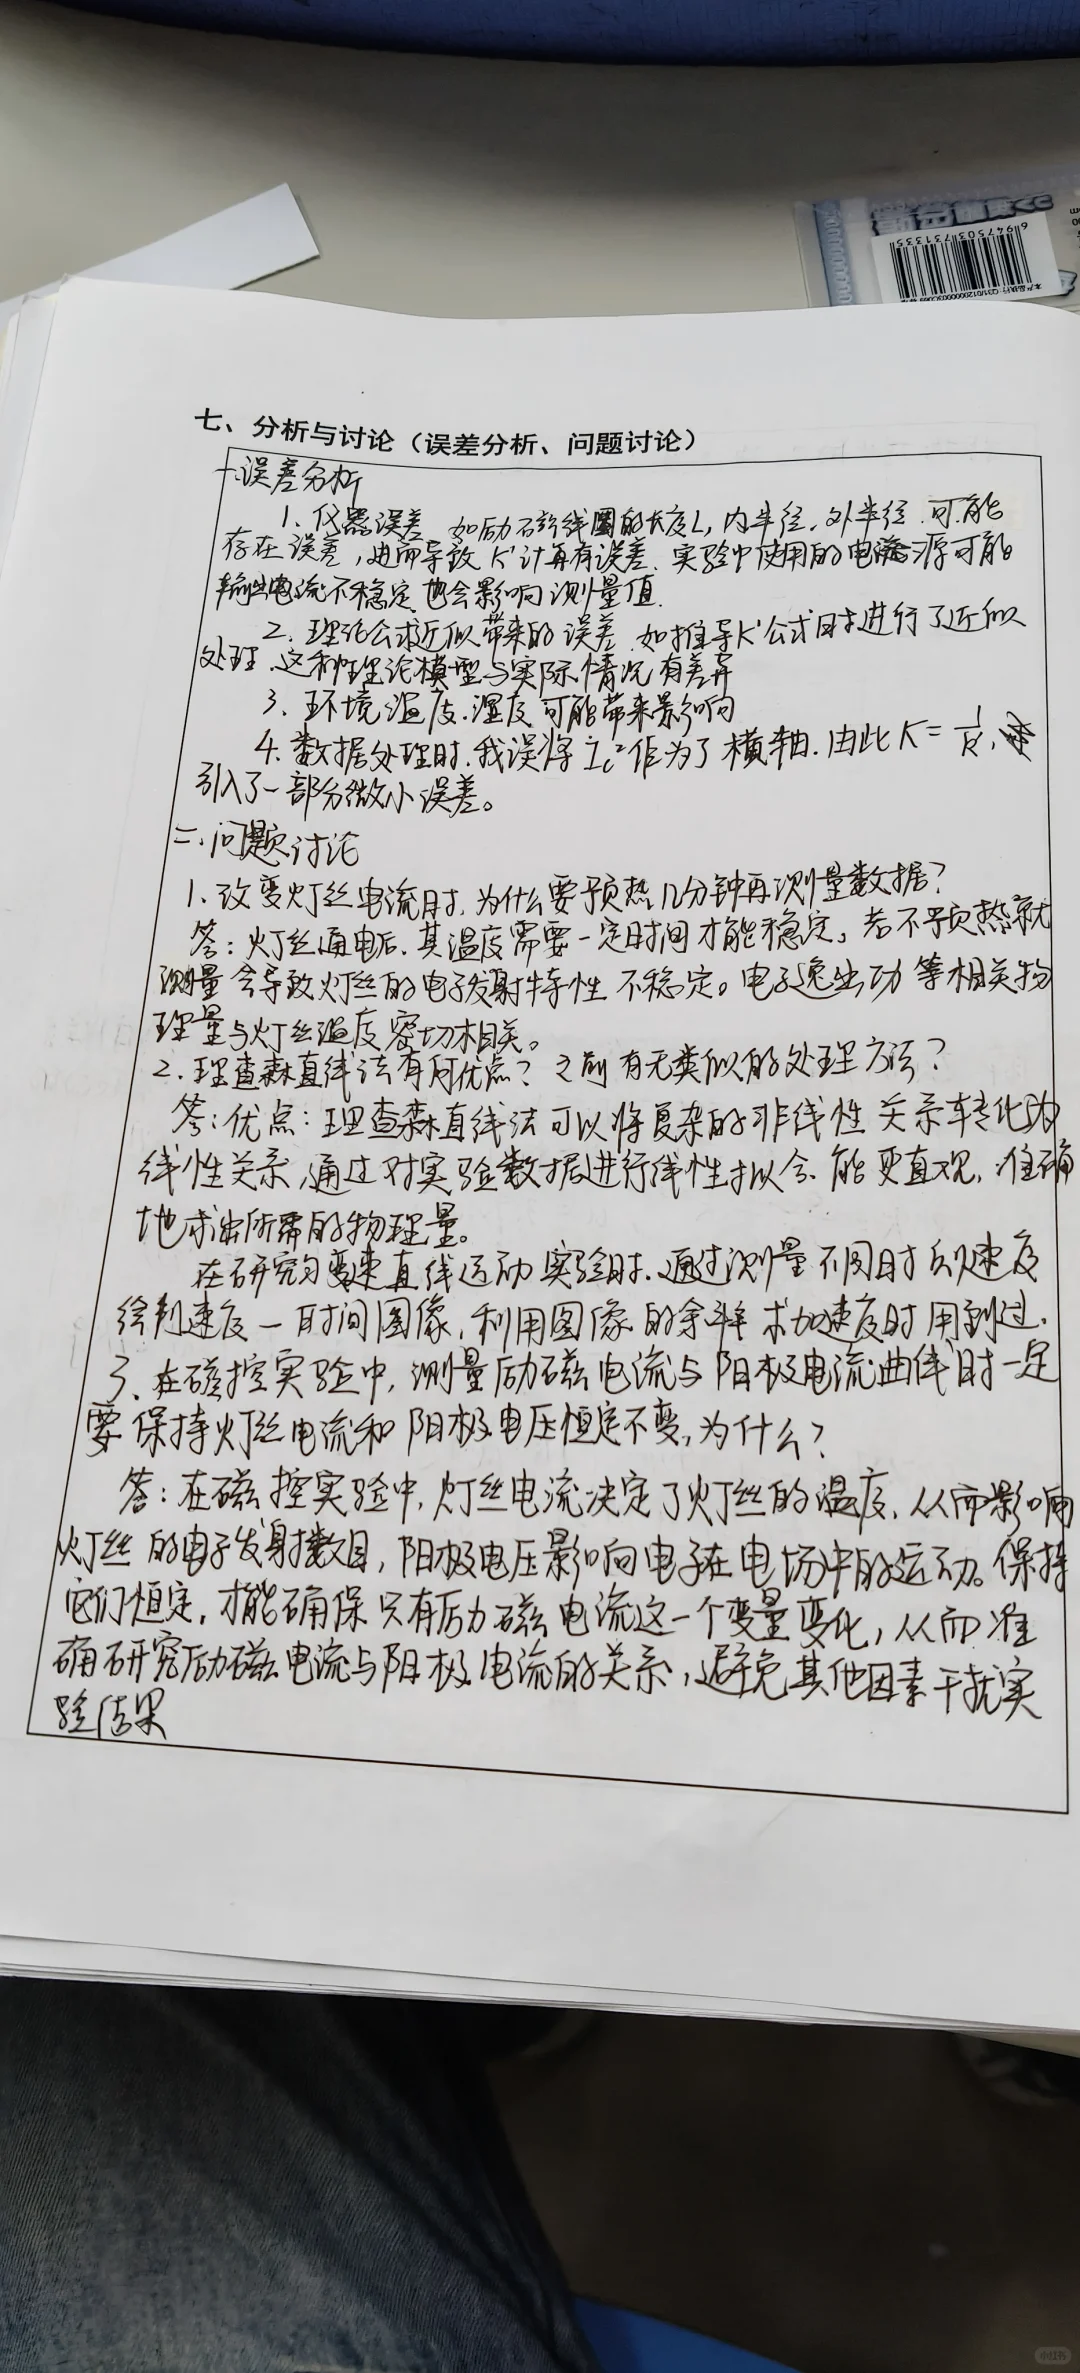 6947503731335
七、分析与讨论（误差分析、问题讨论）
一.误差分析
1、仪器误差 如励磁线圈的长度L, 内半径, 外半径 可能
存在误差, 进而导致 K'计算有误差. 实验中使用的电源可能
输出电流不稳定 也会影响测量值.
2. 理论公式近似带来的误差 如推导K'公式时进行了近似
处理. 这种理论模型与实际情况有差异
3、环境温度.湿度 可能带来影响
4. 数据处理时.我误将 Ic²作为了横轴. 由此K=1/K',
引入了一部分微小误差。
二.问题讨论
1.改变灯丝电流时.为什么要预热几分钟再测量数据?
答: 灯丝通电后.其温度需要一定时间才能稳定。若不预热就
测量会导致灯丝的电子发射特性不稳定。电子逸出功等相关物
理量与灯丝温度密切相关。
2.理查森直线法有何优点? 之前有无类似的处理方法?
答:优点: 理查森直线法可以将复杂的非线性关系转化为
线性关系,通过对实验数据进行线性拟合.能更直观,准确
地求出所需的物理量。
在研究匀变速直线运动实验时.通过测量不同时刻速度
绘制速度一时间图像,利用图像的斜率求加速度时用到过.
3、在磁控实验中,测量励磁电流与阳极电流曲线时一定
要保持灯丝电流和阳极电压恒定不变,为什么?
答:在磁控实验中,灯丝电流决定了灯丝的温度,从而影响
灯丝的电子发射数目,阳极电压影响电子在电场中的运动。保持
它们恒定,才能确保只有励磁电流这一个变量变化,从而准
确研究励磁电流与阳极电流的关系,避免其他因素干扰实
验结果
小红书